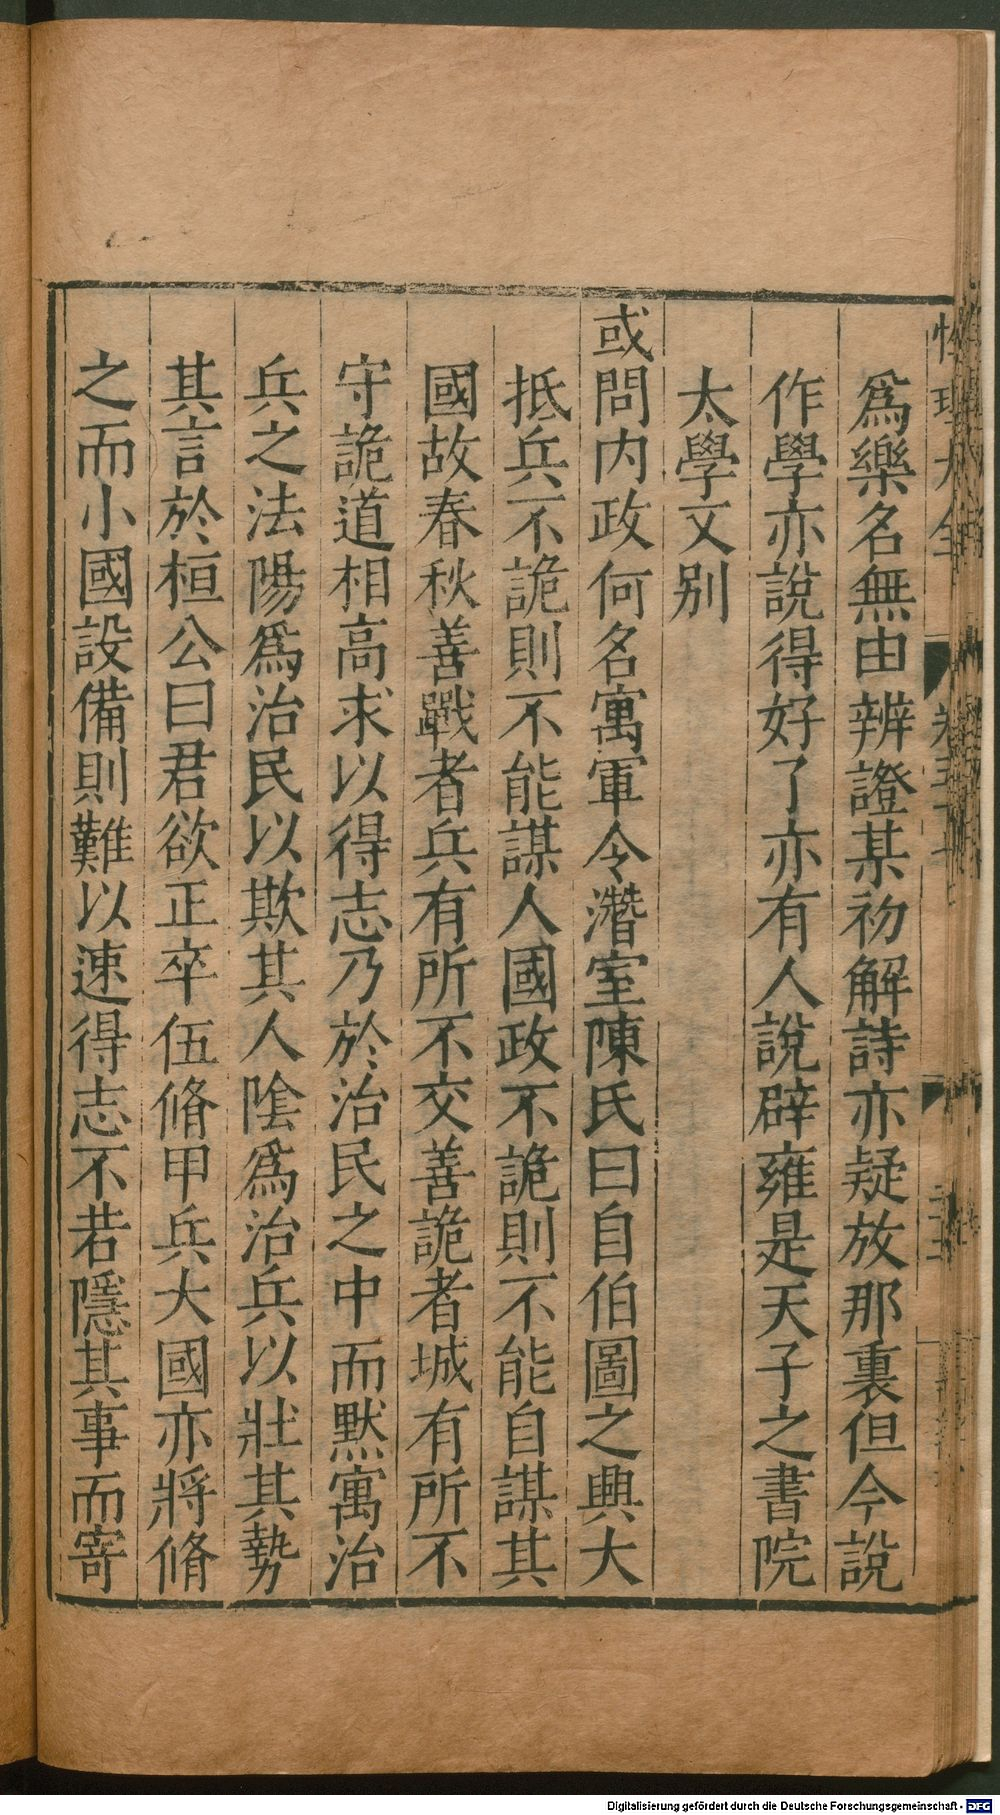 爲樂名無由辨證某初解詩亦疑放那裏但今說
作學亦說得好了亦有人說辟雍是天子之書院
太學又別
或問内政何名寓軍令潛室陳氏曰自伯圖之興大
抵兵不詭則不能謀人國政不詭則不能自謀其
國故春秋善戰者兵有所不交善詭者城有所不
守詭道相高求以得志乃於治民之中而默寓治
兵之法陽爲治民以欺其人陰爲治兵以壯其勢
其言於桓公曰君欲正卒伍脩甲兵大國亦將脩
之而小國設備則難以速得志不若隱其事而寄
Digitalisierung gefördert durch die Deutsche Forschungsgemeinschaft - DFG